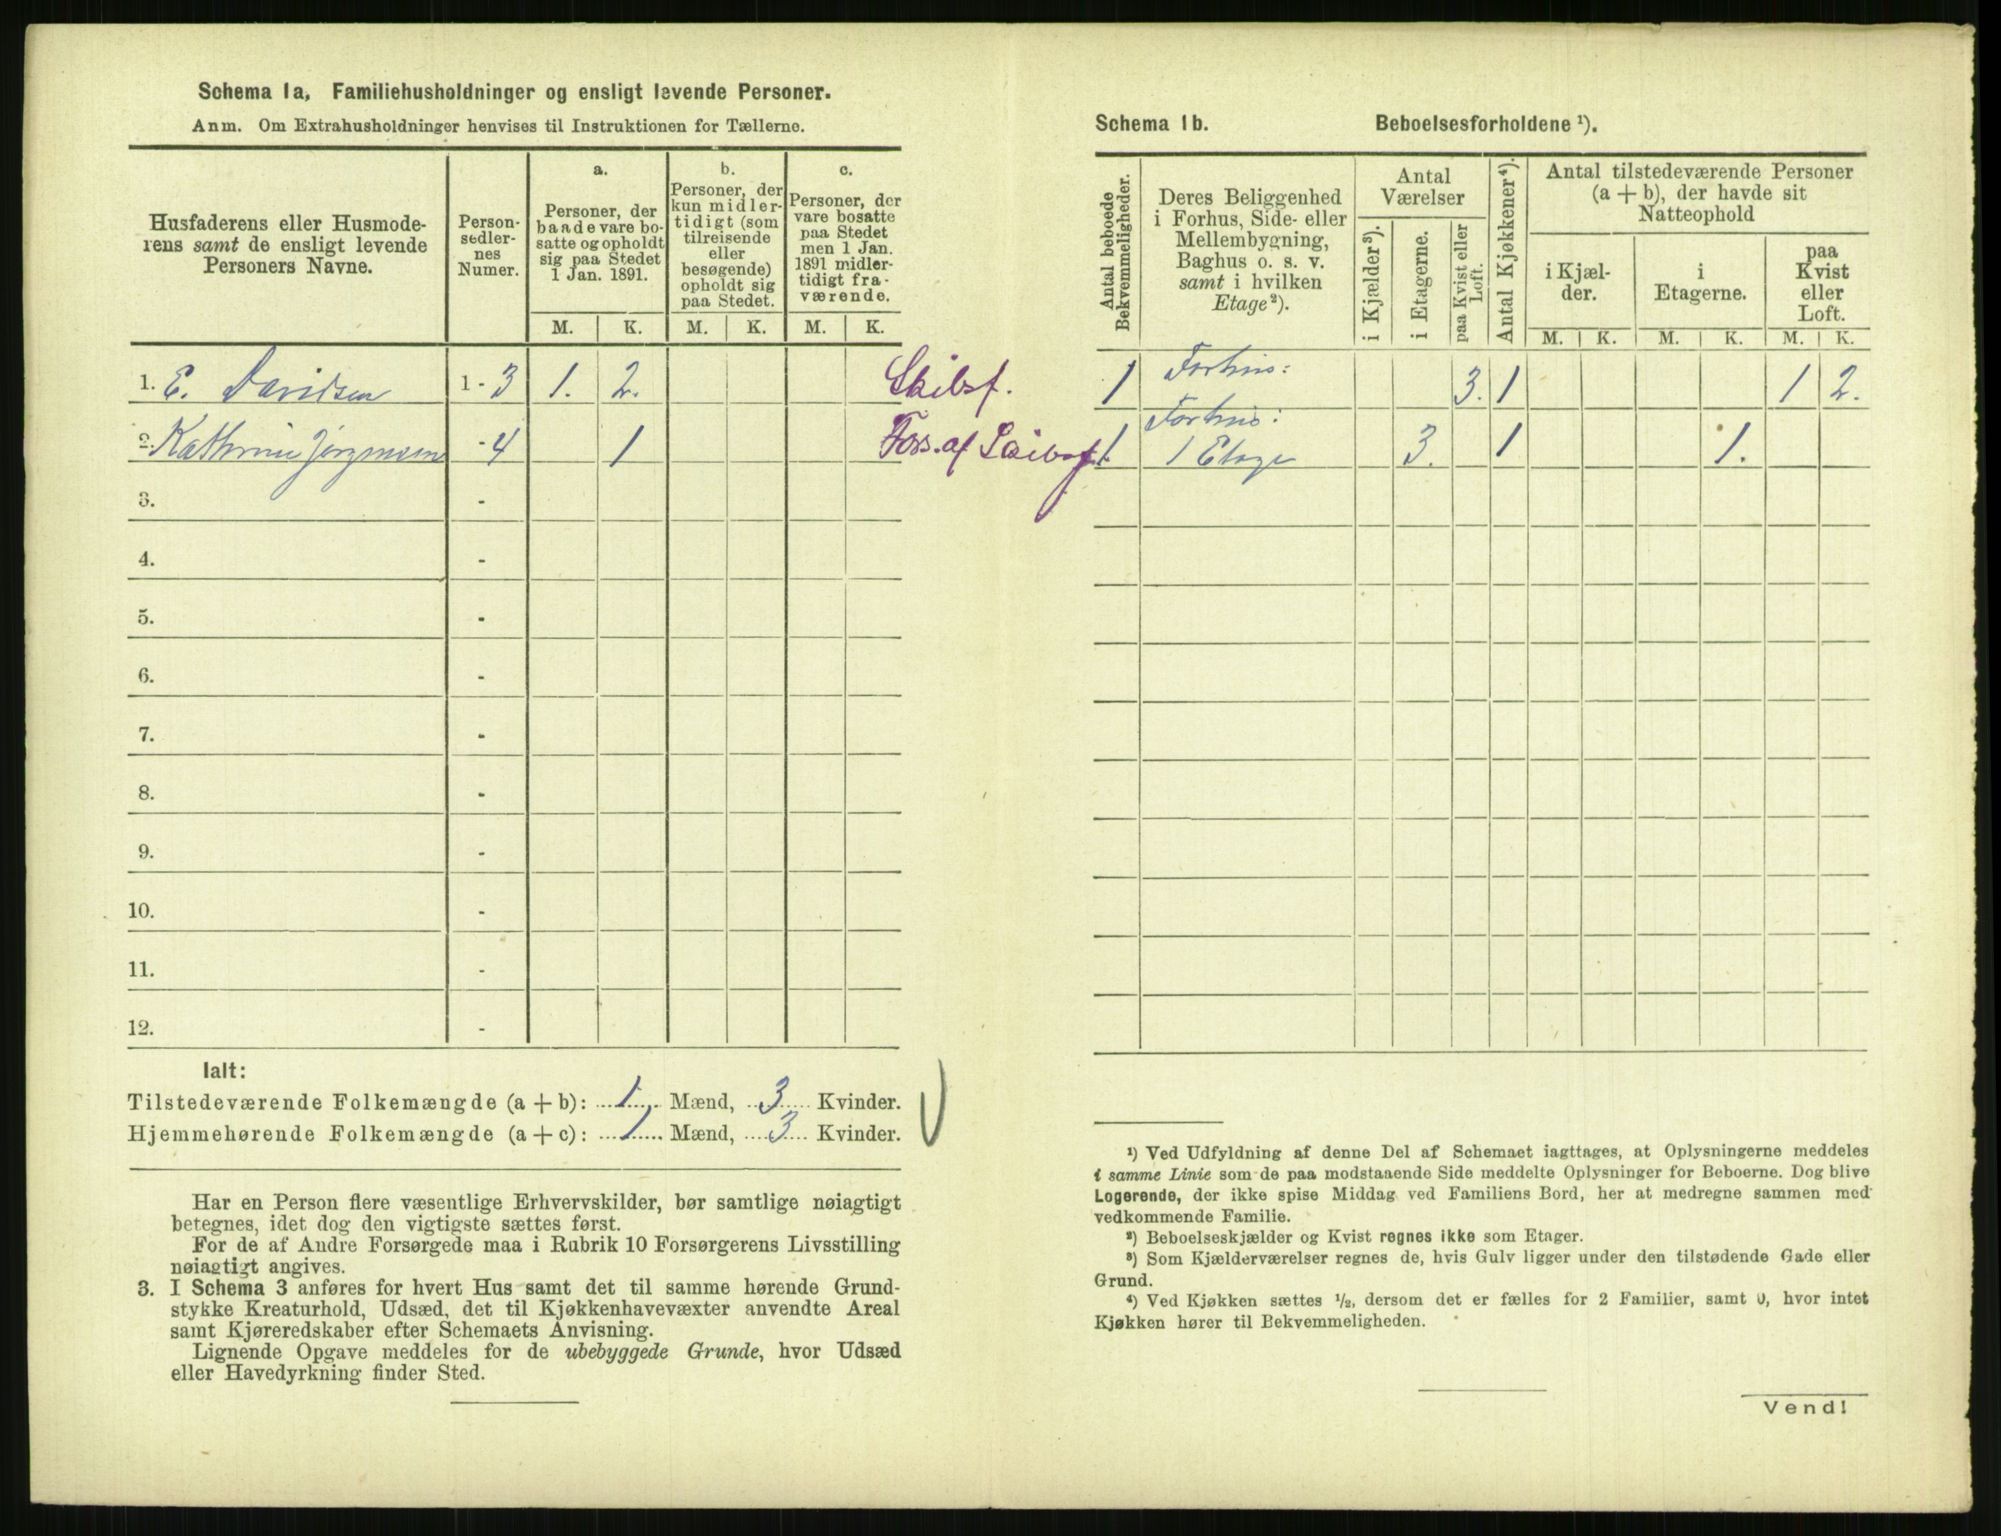 Schema 1a, Familiehusholdninger og ensligt levende Personer.
Anm. Om Extrahusholdninger henvises til Instruktionen for Tællerne.
Husfaderens eller Husmode-
rens samt de ensligt levende
Personers Navne.
Person-
sedler-
nes
Numer.
a.
Personer, der
baade vare bo-
satte og opholdt
sig paa Stedet
1 Jan. 1891.
b.
Personer, der
kun midler-
tidigt (som
tilreisende
eller
besøgende)
opholdt sig
paa Stedet.
c.
Personer, der
vare bosatte
paa Stedet
men 1 Jan.
1891 midler-
tidigt fra-
værende.
M. K. M. K. M. K.
1. E. Davidsen 1 - 3 1. 2. Skibsf.
2. Kathrine Jørgensen - 4 1 Fors. af Skibsf.
3. -
4. -
5. -
6. -
7. -
8. -
9. -
10. -
11. -
12. -
Ialt:
Tilstedeværende Folkemængde (a + b): 1 Mænd, 3 Kvinder.
Hjemmehørende Folkemængde (a + c): 1 Mænd, 3 Kvinder.
Har en Person flere væsentlige Erhvervskilder, bør samtlige nøiagtigt
betegnes, idet dog den vigtigste sættes først.
For de af Andre Forsørgede maa i Rubrik 10 Forsørgerens Livsstilling
nøiagtigt angives.
3. I Schema 3 anføres for hvert Hus samt det til samme hørende Grund-
stykke Kreaturhold, Udsæd, det til Kjøkkenhavevæxter anvendte Areal
samt Kjøreredskaber efter Schemaets Anvisning.
Lignende Opgave meddeles for de ubebyggede Grunde, hvor Udsæd
eller Havedyrkning finder Sted.
Schema 1b. Beboelsesforholdene ¹).
Antal beboede
Bekvemmeligheder.
Deres Beliggenhed
i Forhus, Side- eller
Mellembygning,
Baghus o. s. v.
samt i hvilken
Etage²).
Antal
Værelser
i Kjælder³).
i Etagerne.
paa Kvist eller
Loft.
Antal Kjøkkener⁴).
Antal tilstedeværende Personer
(a + b), der havde sit
Natteophold
i Kjæl-
der.
i
Etagerne.
paa
Kvist
eller
Loft.
M. K. M. K. M. K.
1 Forhus: 3. 1 1 2.
1. Forhus:
1 Etage 3. 1 1.
¹) Ved Udfyldning af denne Del af Schemaet iagttages, at Oplysningerne meddeles
i samme Linie som de paa modstaaende Side meddelte Oplysninger for Beboerne. Dog blive
Logerende, der ikke spise Middag ved Familiens Bord, her at medregne sammen med
vedkommende Familie.
²) Beboelseskjælder og Kvist regnes ikke som Etager.
³) Som Kjælderværelser regnes de, hvis Gulv ligger under den tilstødende Gade eller
Grund.
⁴) Ved Kjøkken sættes ½, dersom det er fælles for 2 Familier, samt 0, hvor intet
Kjøkken hører til Bekvemmeligheden.
Vend!